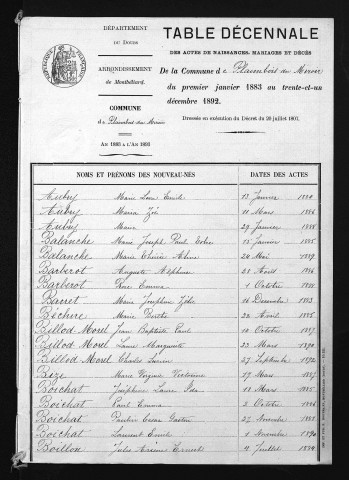 DÉPARTEMENT
DU DOUBS
ARRONDISSEMENT
de Montbéliard.
COMMUNE
de Plaimbois du Miroir
AN 1883 A L'AN 1893
TABLE DÉCENNALE
DES ACTES DE NAISSANCES, MARIAGES ET DÉCÈS
De la Commune de Plaimbois du Miroir
du premier janvier 1883 au trente-et-un
décembre 1892.
Dressée en exécution du Décret du 20 juillet 1807.
NOMS ET PRÉNOMS DES NOUVEAU-NÉS DATES DES ACTES
Aubry Marie 13 Janvier
Aubry Maria Zoé 11 Mars 1886
Aubry Maria 29 Janvier 1888
Balanche Marie Joseph Paul 15 Janvier 1885
Balanche Marie 24 Mai 1889
Barberot Auguste Alphonse 28 Août 1886
Barberot Rose Emma 1 Octobre
Barret Marie Joséphine Zélie 16 Décembre 1883
Béchire Marie Berthe 22 Avril 1885
Billod Morel Jean Baptiste Paul 14 Octobre 1887
Billod Morel Laure Marguerite 23 Mars 1890
Billod Morel Charles Lucien 27 Septembre 1892
Bize Marie Virginie Victorine 19 Mars 1887
Boichat Joséphine Laure Ida 18 Mars 1885
Boichat Paul Emma 2 Octobre 1886
Boichat Paulin Cesar Gaston 27 Novembre 1888
Boichat Laurent Emile 1 Novembre 1890
Boillon Jules Arsène Ernest 4 Juillet 1884